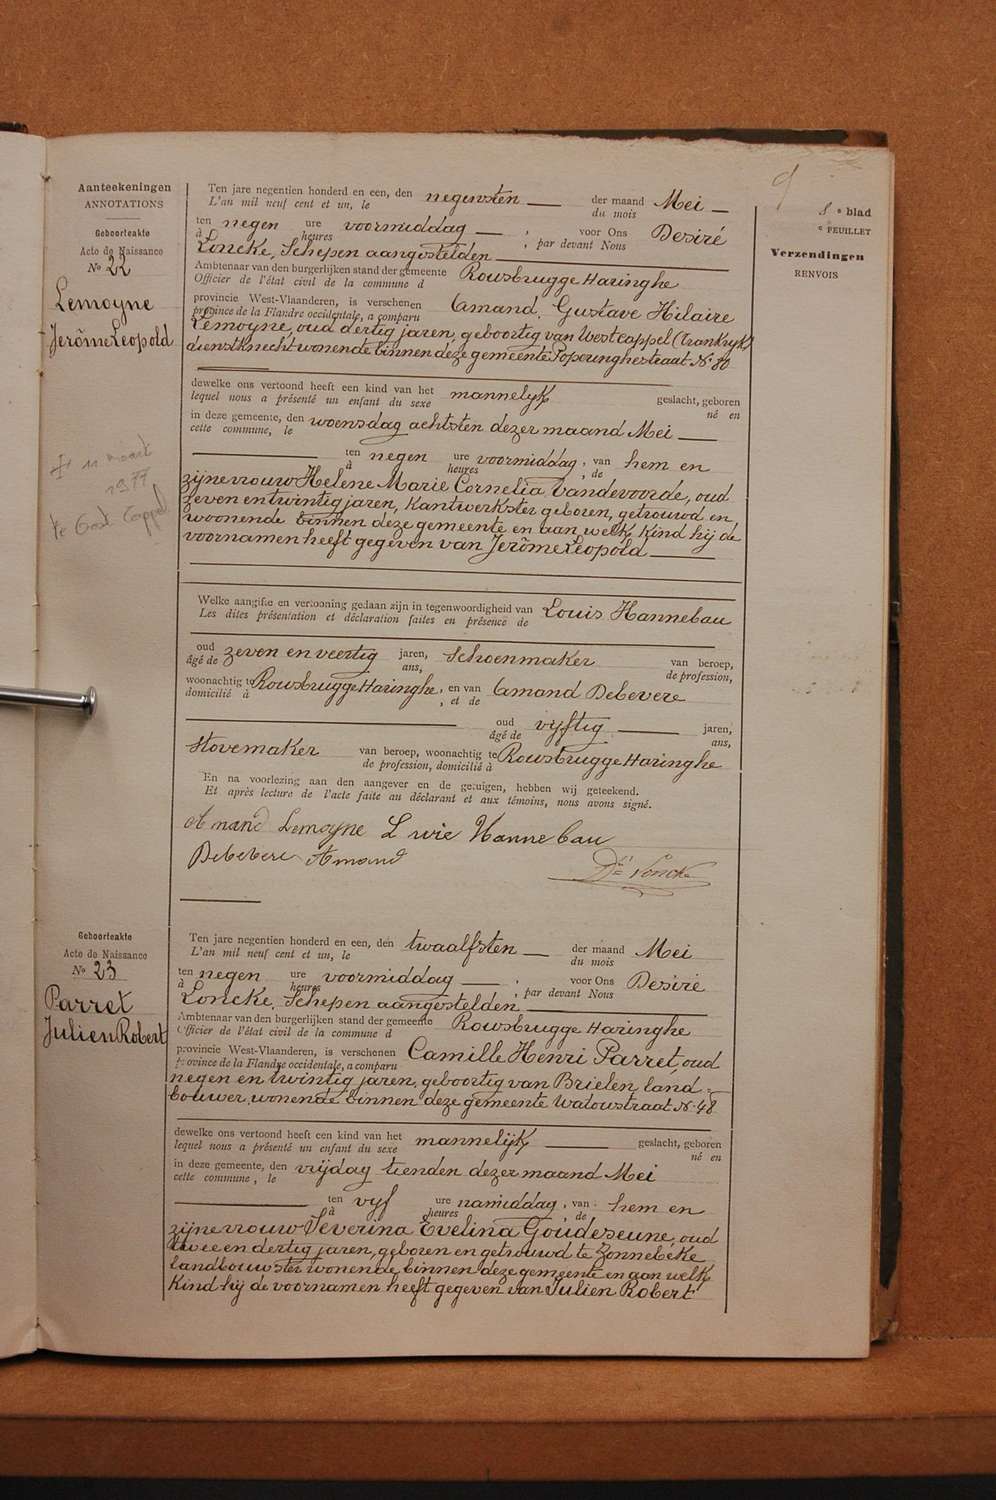 9
8e blad
e FEUILLET
Verzendingen
RENVOIS
Aanteekeningen
ANNOTATIONS
Geboorteakte
Acte de Naissance
No 22
Lemoyne
Jerôme Leopold
+ 11 maart
1977
te Oost-Cappel
Ten jare negentien honderd en een, den negensten — der maand Mei —
L'an mil neuf cent et un, le du mois
ten negen ure voormiddag — , voor Ons Desiré
à heures , par devant Nous
Loncke, Schepen aangestelden
Ambtenaar van den burgerlijken stand der gemeente Rousbrugge Haringhe
Officier de l'état civil de la commune d
provincie West-Vlaanderen, is verschenen Amand, Gustave Hilaire
province de la Flandre occidentale, a comparu
Lemoyne, oud dertig jaren, geboortig van West cappel (Frankryk)
dienstknecht wonende binnen deze gemeente Poperinghestraat No 80
dewelke ons vertoond heeft een kind van het mannelyk geslacht, geboren
lequel nous a présenté un enfant du sexe né en
in deze gemeente, den woensdag achtsten dezer maand Mei —
cette commune, le
ten negen ure voormiddag , van hem en
à heures , de
zijne vrouw Helene Marie Cornelia Vandevoorde, oud
zeven en twintig jaren, kantwerkster geboren, getrouwd en
woonende binnen deze gemeente en aan welk kind hij de
voornamen heeft gegeven van Jerôme Leopold
Welke aangifte en vertooning gedaan zijn in tegenwoordigheid van Louis Hannebau
Les dites présentation et déclaration faites en présence de
oud zeven en veertig jaren, Schoenmaker van beroep,
âgé de ans, de profession,
woonachtig te Rousbrugge Haringhe , en van Amand Debevere
domicilié à , et de
oud vyftig — jaren,
âgé de ans,
Stovemaker van beroep, woonachtig te Rousbrugge Haringhe
de profession, domicilié à
En na voorlezing aan den aangever en de getuigen, hebben wij geteekend.
Et après lecture de l'acte faite au déclarant et aux témoins, nous avons signé.
Amand Lemoyne L wie Hannebau
Debevere Amand
Dré Loncke
Geboorteakte
Acte de Naissance
No 23
Parret
Julien Robert
Ten jare negentien honderd en een, den twaalfsten — der maand Mei
L'an mil neuf cent et un, le du mois
ten negen ure voormiddag — , voor Ons Desiré
à heures , par devant Nous
Loncke, Schepen aangestelden
Ambtenaar van den burgerlijken stand der gemeente Rousbrugge Haringhe
Officier de l'état civil de la commune d
provincie West-Vlaanderen, is verschenen Camille Henri Parret, oud
province de la Flandre occidentale, a comparu
negen en twintig jaren, geboortig van Brielen, land-
bouwer, wonende binnen deze gemeente Watoustraat No 48
dewelke ons vertoond heeft een kind van het mannelijk — geslacht, geboren
lequel nous a présenté un enfant du sexe né en
in deze gemeente, den vrijdag tienden dezer maand Mei
cette commune, le
ten vyf ure namiddag , van hem en
à heures , de
zijne vrouw Severina Evelina Goudeseune, oud
twee en dertig jaren, geboren en getrouwd te Zonnebeke
landbouwster wonende binnen deze gemeente en aan welk
kind hij de voornamen heeft gegeven van Julien Robert